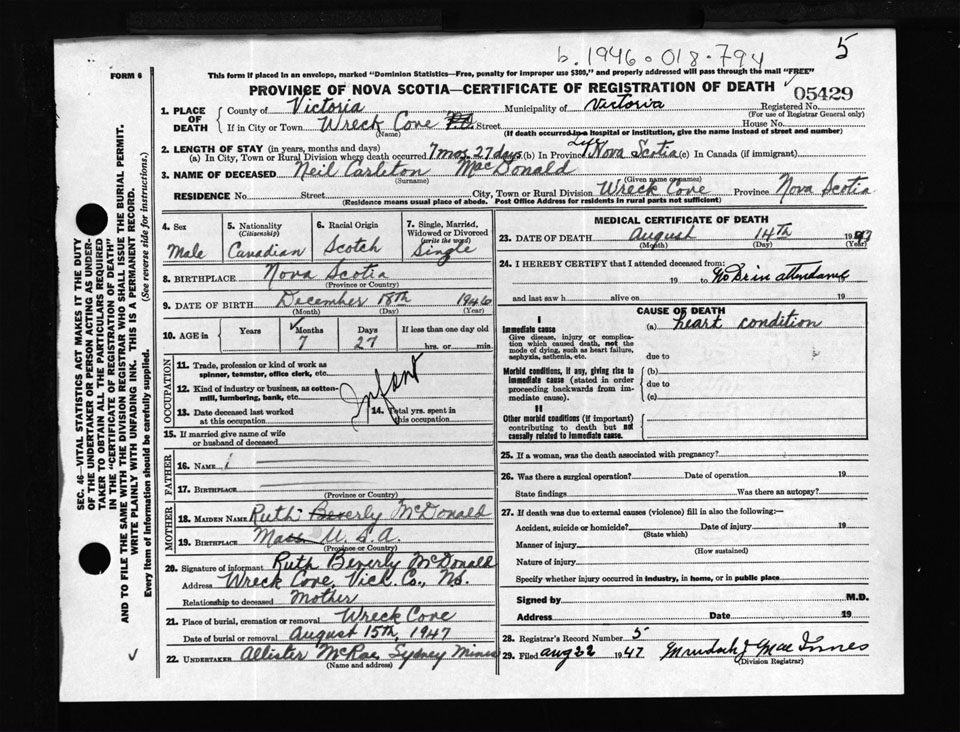 b. 1946-018-794
5
FORM 6
This form if placed in an envelope, marked "Dominion Statistics—Free, penalty for improper use $300," and properly addressed will pass through the mail "FREE"
PROVINCE OF NOVA SCOTIA—CERTIFICATE OF REGISTRATION OF DEATH
05429
1. PLACE OF DEATH
County of Victoria Municipality of Victoria Registered No.
(For use of Registrar General only)
If in City or Town Wreck Cove Street House No.
(Name) (If death occurred in a hospital or institution, give the name instead of street and number)
2. LENGTH OF STAY (in years, months and days)
(a) In City, Town or Rural Division where death occurred 7 mos 27 days (b) In Province Life Nova Scotia (c) In Canada (if immigrant)
3. NAME OF DECEASED Neil Carleton MacDonald
(Surname) (Given name or names)
RESIDENCE No. Street City, Town or Rural Division Wreck Cove Province Nova Scotia
(Residence means usual place of abode. Post Office Address for residents in rural parts not sufficient)
4. Sex
Male
5. Nationality
(Citizenship)
Canadian
6. Racial Origin
Scotch
7. Single, Married, Widowed or Divorced
(write the word)
Single
8. BIRTHPLACE Nova Scotia
(Province or County)
9. DATE OF BIRTH December 18th 1946
(Month) (Day) (Year)
10. AGE in
Years Months Days If less than one day old
7 27 hrs. or min.
OCCUPATION
11. Trade, profession or kind of work as
spinner, teamster, office clerk, etc.
12. Kind of industry or business, as cotten-
mill, lumbering, bank, etc.
Infant
13. Date deceased last worked
at this occupation
14. Total yrs. spent in
this occupation
15. If married give name of wife
or husband of deceased
FATHER
16. NAME
17. BIRTHPLACE
(Province or County)
MOTHER
18. MAIDEN NAME Ruth Beverly McDonald
19. BIRTHPLACE Mass U.S.A.
(Province or County)
20. Signature of informant Ruth Beverly McDonald
Address Wreck Cove, Vick. Co., Ns.
Relationship to deceased Mother
21. Place of burial, cremation or removal Wreck Cove
Date of burial or removal August 15th, 1947
22. UNDERTAKER Allister McRae Sydney Mines
(Name and address)
MEDICAL CERTIFICATE OF DEATH
23. DATE OF DEATH August 14th 1947
(Month) (Day) (Year)
24. I HEREBY CERTIFY that I attended deceased from:
19 to No Dr in attendance 19
and last saw h alive on 19
CAUSE OF DEATH
I
Immediate cause (a) heart condition
Give disease, injury or complica-
tion which caused death, not the
mode of dying, such as heart failure,
asphyxia, asthenia, etc. due to
Morbid conditions, if any, giving rise to (b)
immediate cause (stated in order due to
proceeding backwards from im-
mediate cause). (c)
II
Other morbid conditions (if important)
contributing to death but not
causally related to immediate cause.
25. If a woman, was the death associated with pregnancy?
26. Was there a surgical operation? Date of operation 19
State findings Was there an autopsy?
27. If death was due to external causes (violence) fill in also the following:—
Accident, suicide or homicide? Date of injury 19
(State which)
Manner of injury
(How sustained)
Nature of injury
Specify whether injury occurred in industry, in home, or in public place
Signed by M.D.
Address Date 19
28. Registrar's Record Number 5
29. Filed Aug 22 1947 Murdoch J MacInnes
(Division Registrar)
SEC. 46—VITAL STATISTICS ACT MAKES IT THE DUTY
OF THE UNDERTAKER OR PERSON ACTING AS UNDER-
TAKER TO OBTAIN ALL THE PARTICULARS REQUIRED
IN THE "CERTIFICATE OF REGISTRATION OF DEATH"
AND TO FILE THE SAME WITH THE DIVISION REGISTRAR WHO SHALL ISSUE THE BURIAL PERMIT.
WRITE PLAINLY WITH UNFADING INK. THIS IS A PERMANENT RECORD.
Every item of information should be carefully supplied. (See reverse side for instructions.)